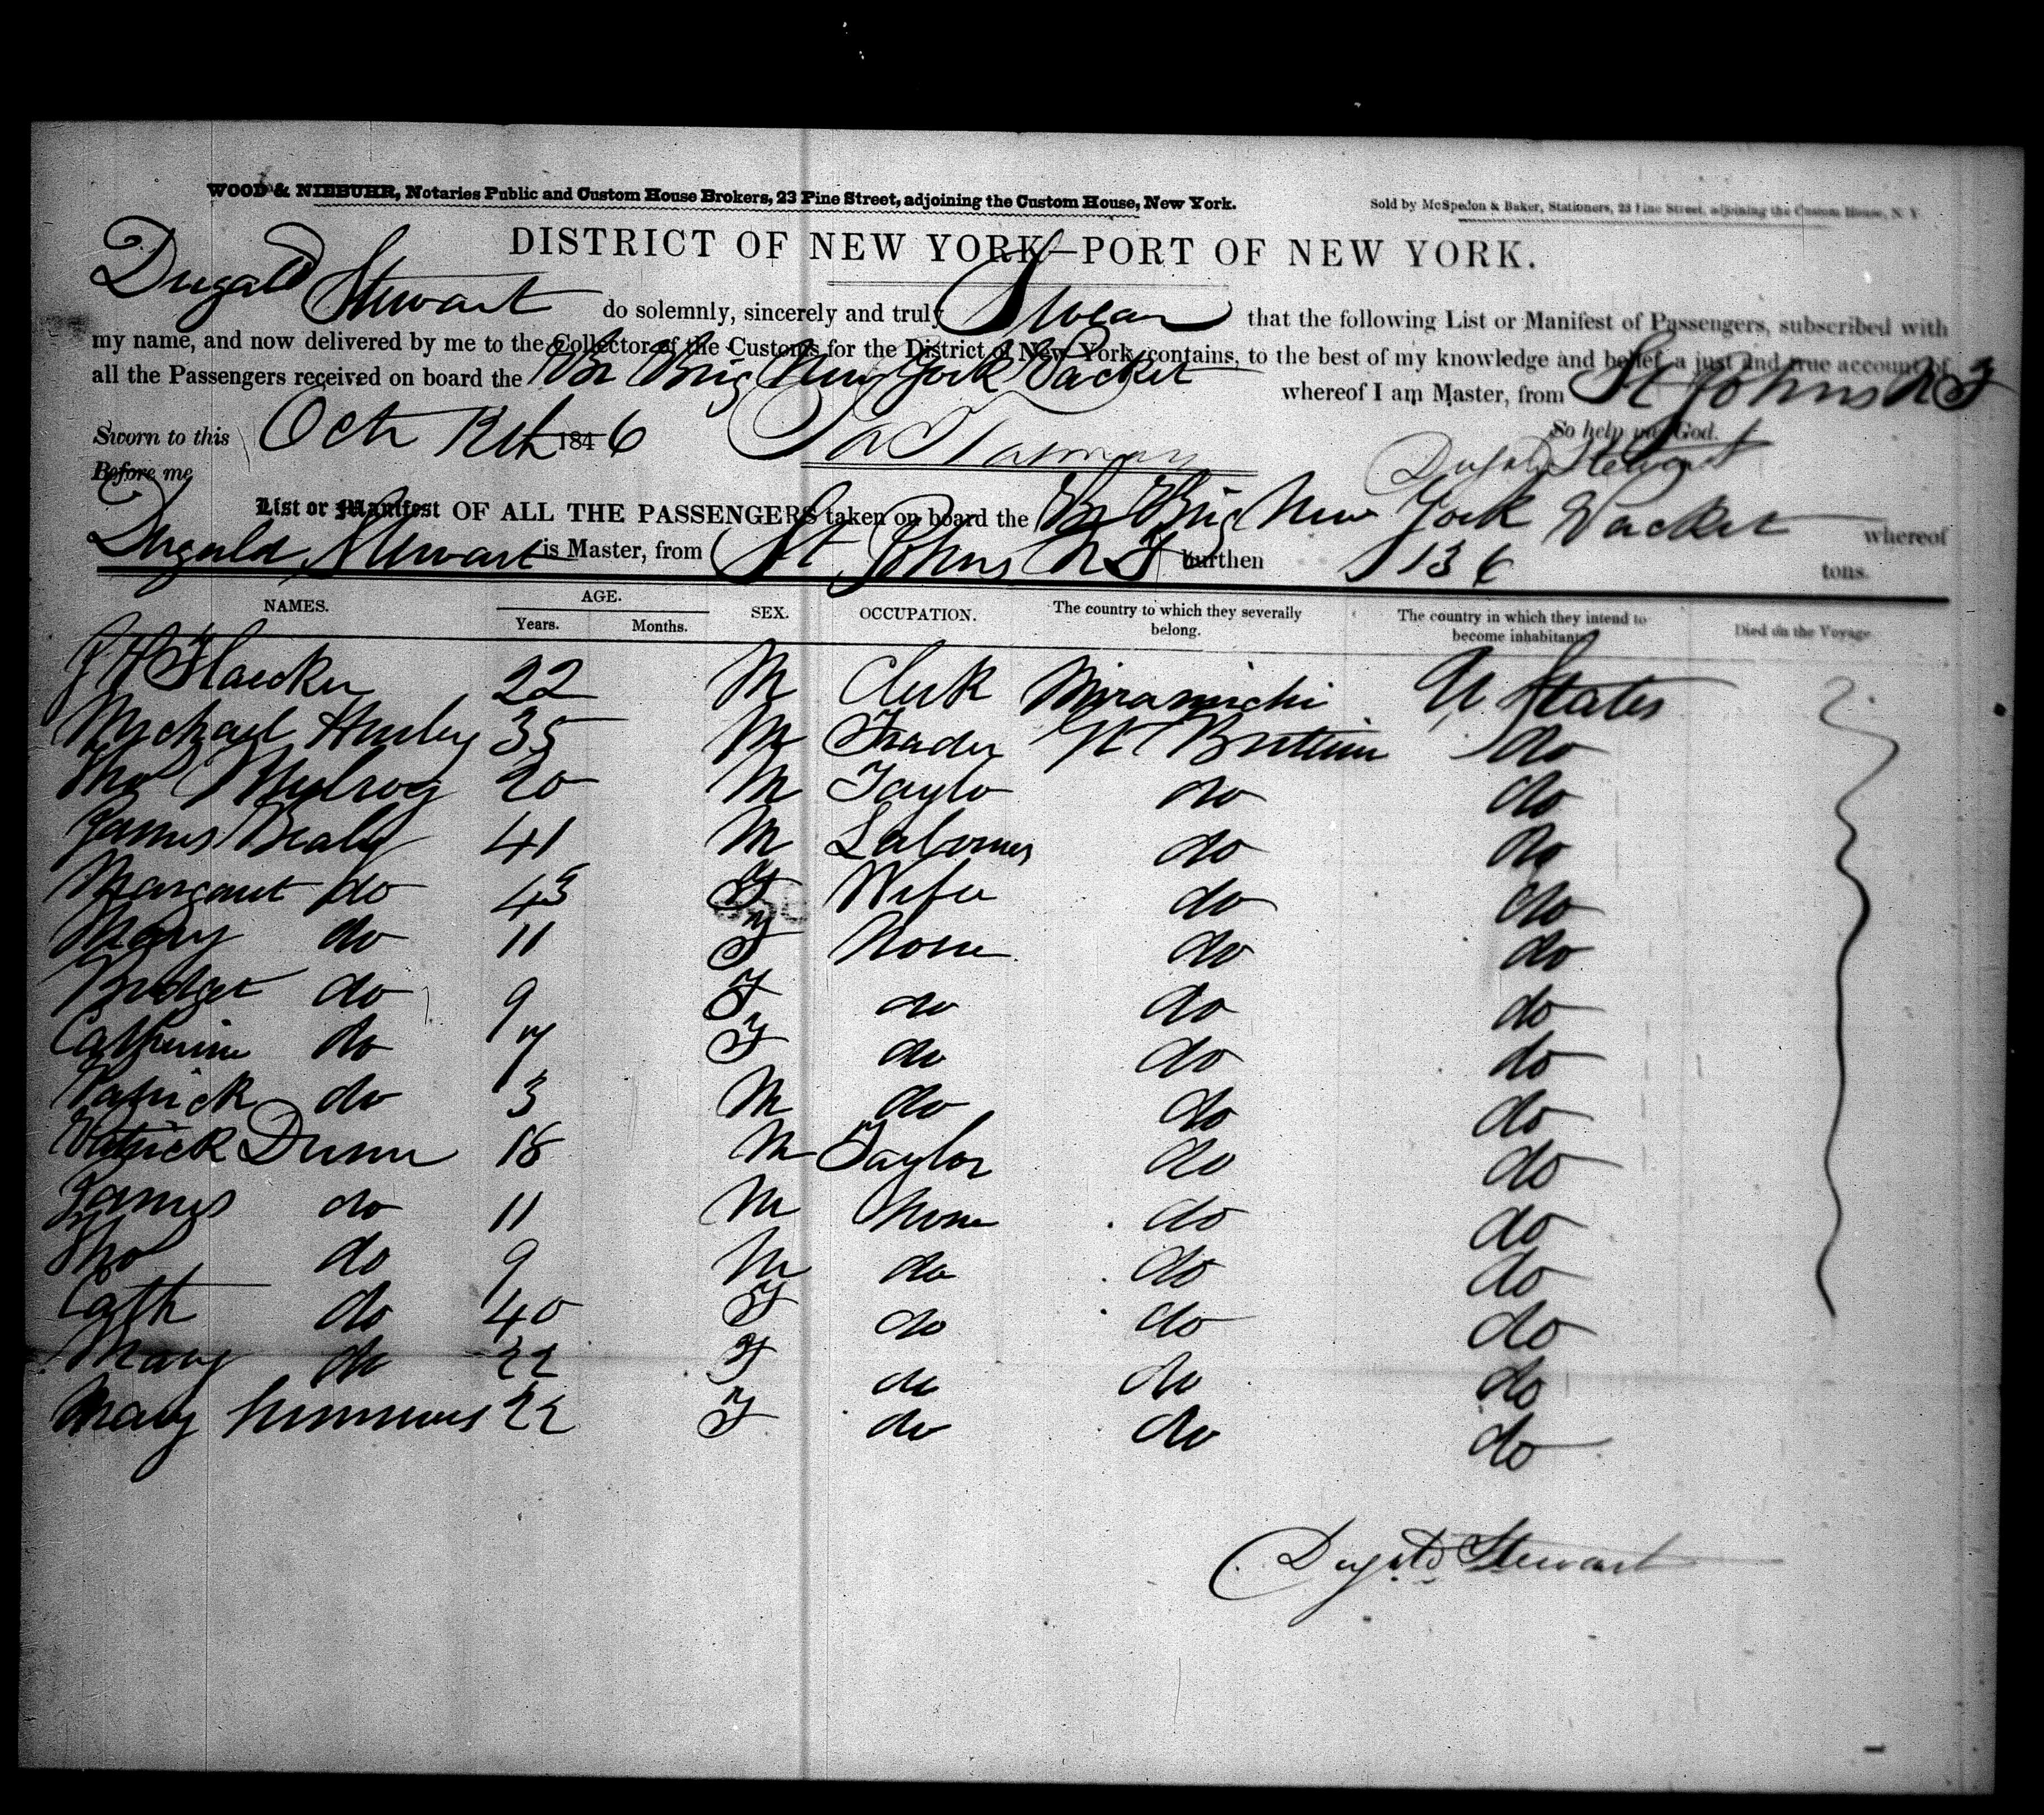 WOOD & NIEBUHR, Notaries Public and Custom House Brokers, 23 Pine Street, adjoining the Custom House, New York.
Sold by McSpedon & Baker, Stationers, 23 Pine Street, adjoining the Custom House, N. Y.
DISTRICT OF NEW YORK—PORT OF NEW YORK.
Dugald Stewart do solemnly, sincerely and truly Swear that the following List or Manifest of Passengers, subscribed with
my name, and now delivered by me to the Collector of the Customs for the District of New York, contains, to the best of my knowledge and belief, a just and true account of
all the Passengers received on board the Br Brig New York Packet whereof I am Master, from St Johns N F
Sworn to this Oct 12th 1846 So help me God.
Before me Dugald Stewart
List or Manifest OF ALL THE PASSENGERS taken on board the Br Brig New York Packet whereof
Dugald Stewart is Master, from St Johns N F burthen 136 tons.
NAMES. AGE. Years. Months. SEX. OCCUPATION. The country to which they severally belong. The country in which they intend to become inhabitants. Died on the Voyage
22 M Clerk Miramichi U States
Michael Hurley 35 M Trader Gt Britain do
Tho 20 M Taylo do do
James Bealy 41 M do do
Margaret do 43 F Wife do do
Mary do 11 F None do do
Bridget do 9 F do do do
Catherine do 7 F do do do
Patrick do 3 M do do do
Patrick Dunn 18 M Taylor do do
James do 11 M None do do
Tho do 9 M do do do
Cath do 40 F do do do
Mary do 22 F do do do
Mary 22 F do do do
Dugald Stewart